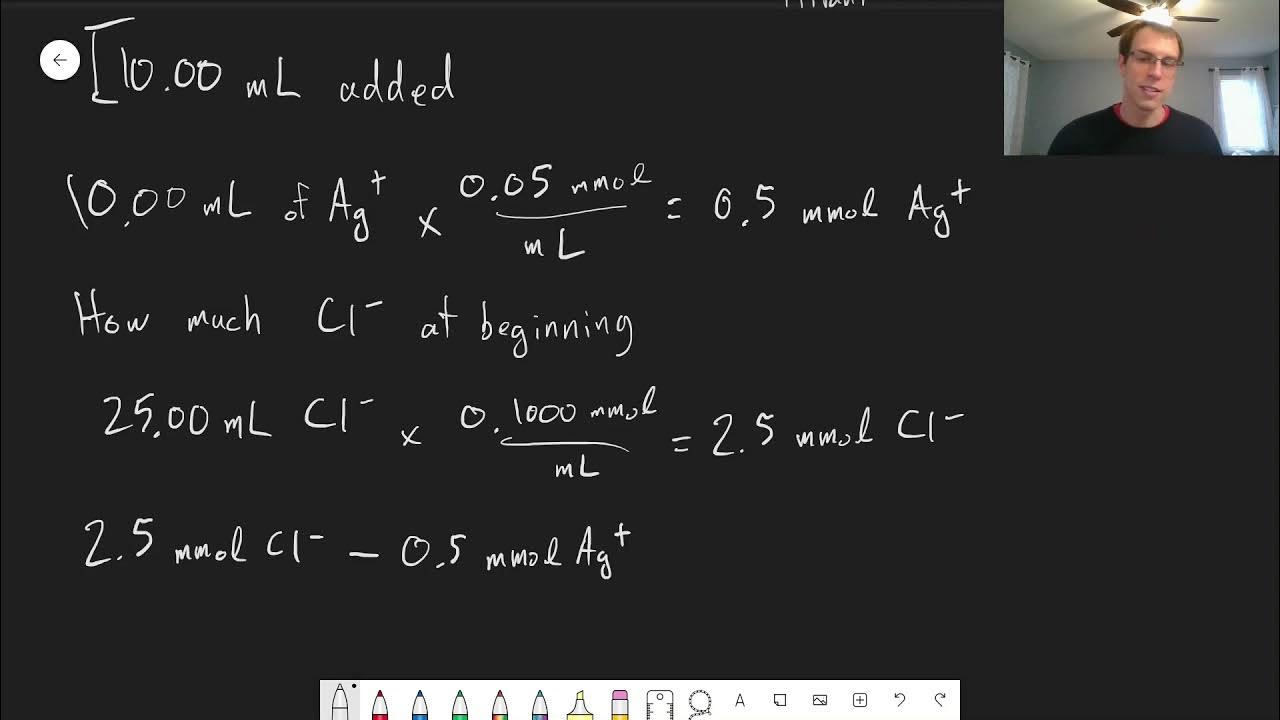 [10.00 mL added
10.00 mL of Ag⁺ × 0.05 mmol / mL = 0.5 mmol Ag⁺
How much Cl⁻ at beginning
25.00 mL Cl⁻ × 0.1000 mmol / mL = 2.5 mmol Cl⁻
2.5 mmol Cl⁻ – 0.5 mmol Ag⁺
A